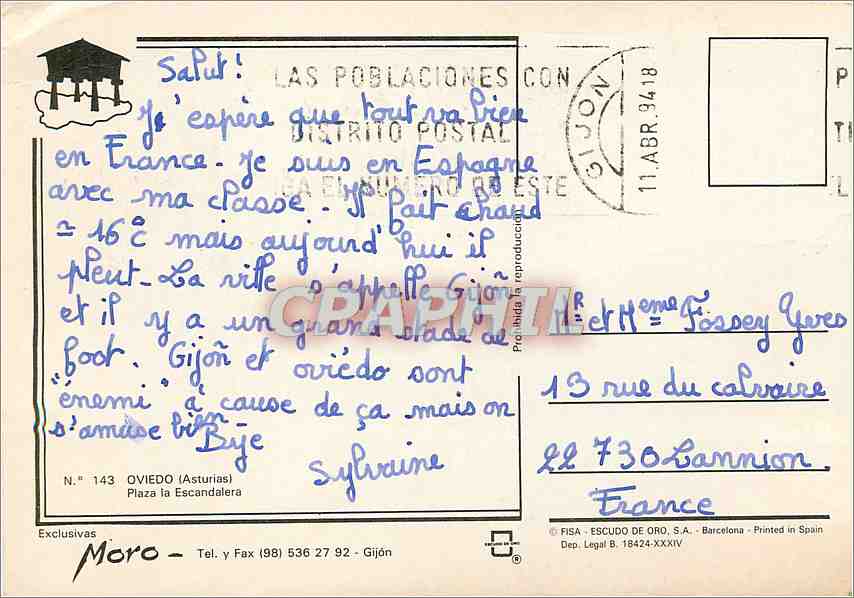 Salut!
J'espère que tout va bien
en France. Je suis en Espagne
avec ma classe. Il fait chaud
≃ 16°C mais aujourd'hui il
pleut. La ville s'appelle Gijoñ
et il y a un grand stade de
foot. Gijoñ et oviédo sont
"énemi" à cause de ça mais on
s'amuse bien.
Bye
Sylvaine
N.° 143 OVIEDO (Asturias)
Plaza la Escandalera
Exclusivas
Moro - Tel. y Fax (98) 536 27 92 - Gijón
ESCUDO DE ORO
®
LAS POBLACIONES CON
DISTRITO POSTAL
EL NUMERO DE ESTE
GIJON
11.ABR.9418
Prohibida la reproducción
CPAPHIL
Mr et Meme Fossey Yves
13 rue du calvaire
22 730 Lannion.
France
© FISA - ESCUDO DE ORO, S.A. - Barcelona - Printed in Spain
Dep. Legal B. 18424-XXXIV